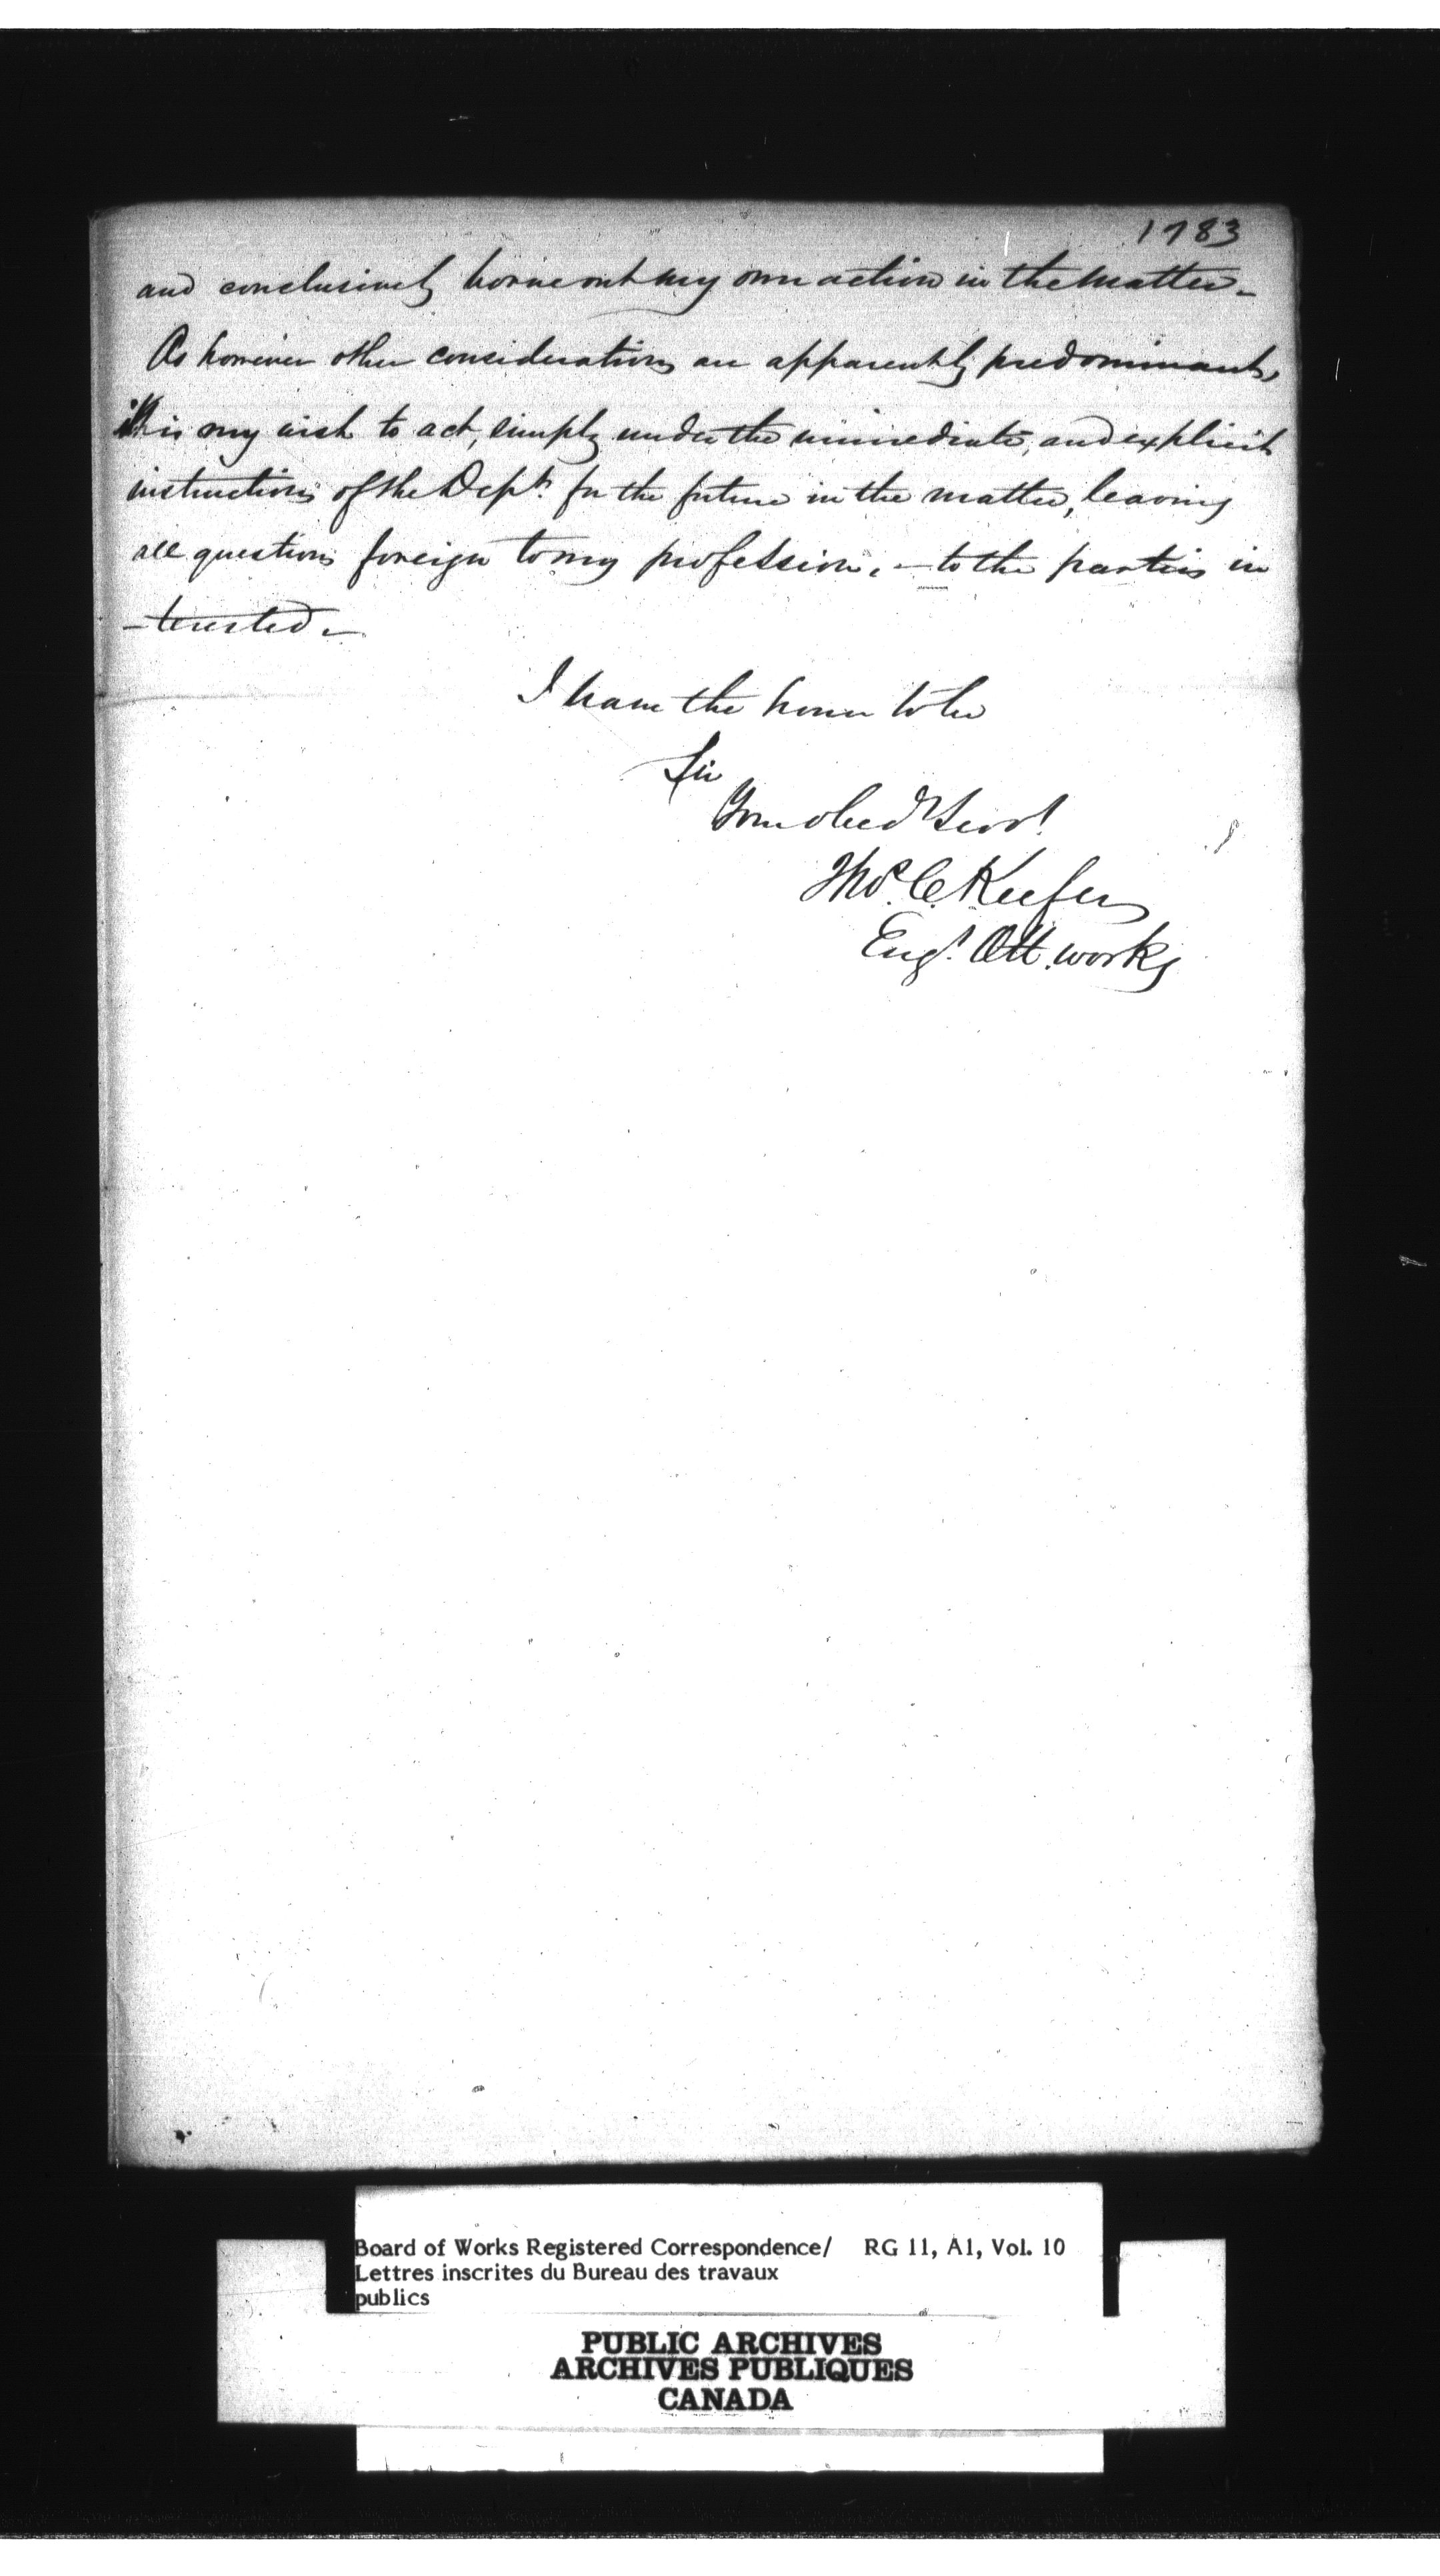 1783
and conclusively borne out my own action in the matter -
As however other considerations are apparently predominant,
it is my wish to act, simply under the immediate, and explicit
instructions of the Dept. for the future in the matter, leaving
all questions foreign to my profession, - to the parties in
-terested -
I have the honor to be
Sir
Your obedt Servt
Thos. C. Keefer
Engr. Ott. works
Board of Works Registered Correspondence/ RG 11, A1, Vol. 10
Lettres inscrites du Bureau des travaux
publics
PUBLIC ARCHIVES
ARCHIVES PUBLIQUES
CANADA